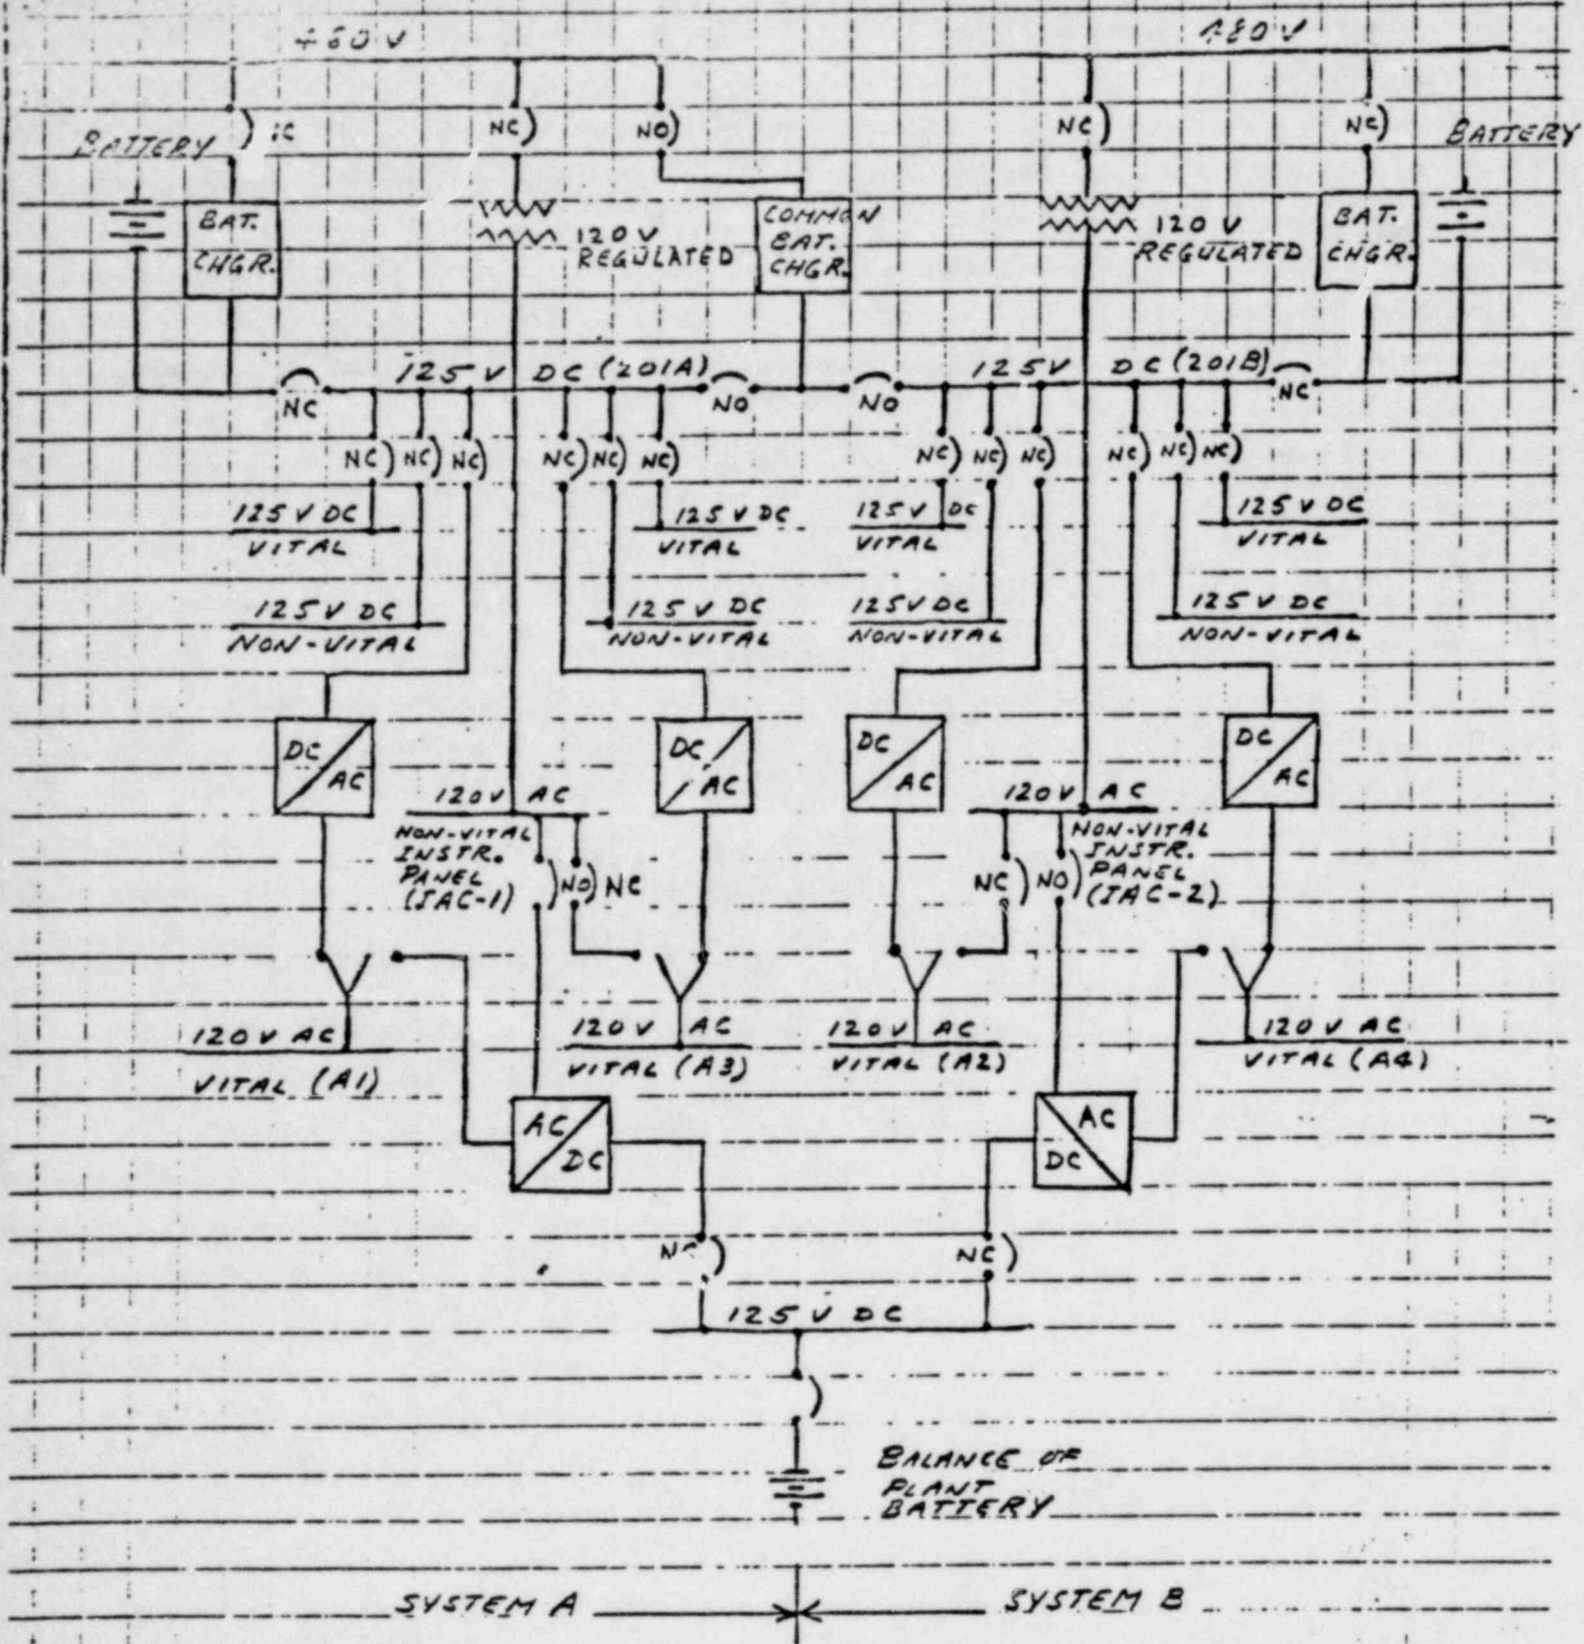 480 V
480 V
BATTERY
NC)
NO)
NC)
NC)
BATTERY
BAT.
CHGR.
120 V
REGULATED
COMMON
BAT.
CHGR.
120 V
REGULATED
BAT.
CHGR.
125 V DC (201A)
125V DC (201B)
NC
NO
NO
NC
NC) NC) NC)
NC) NC) NC)
NC) NC) NC)
NC) NC) NC)
125 V DC
VITAL
125 V DC
VITAL
125 V DC
VITAL
125 V DC
VITAL
125V DC
NON-VITAL
125 V DC
NON-VITAL
125V DC
NON-VITAL
125 V DC
NON-VITAL
DC/AC
DC/AC
DC/AC
DC/AC
120V AC
NON-VITAL
INSTR.
PANEL
(IAC-1)
)NO) NC
120V AC
NC) NO)
NON-VITAL
INSTR.
PANEL
(IAC-2)
120 V AC
VITAL (A1)
120V AC
VITAL (A3)
120V AC
VITAL (A2)
120 V AC
VITAL (A4)
AC/DC
AC/DC
NC)
125 V DC
BALANCE OF
PLANT
BATTERY
SYSTEM A
SYSTEM B